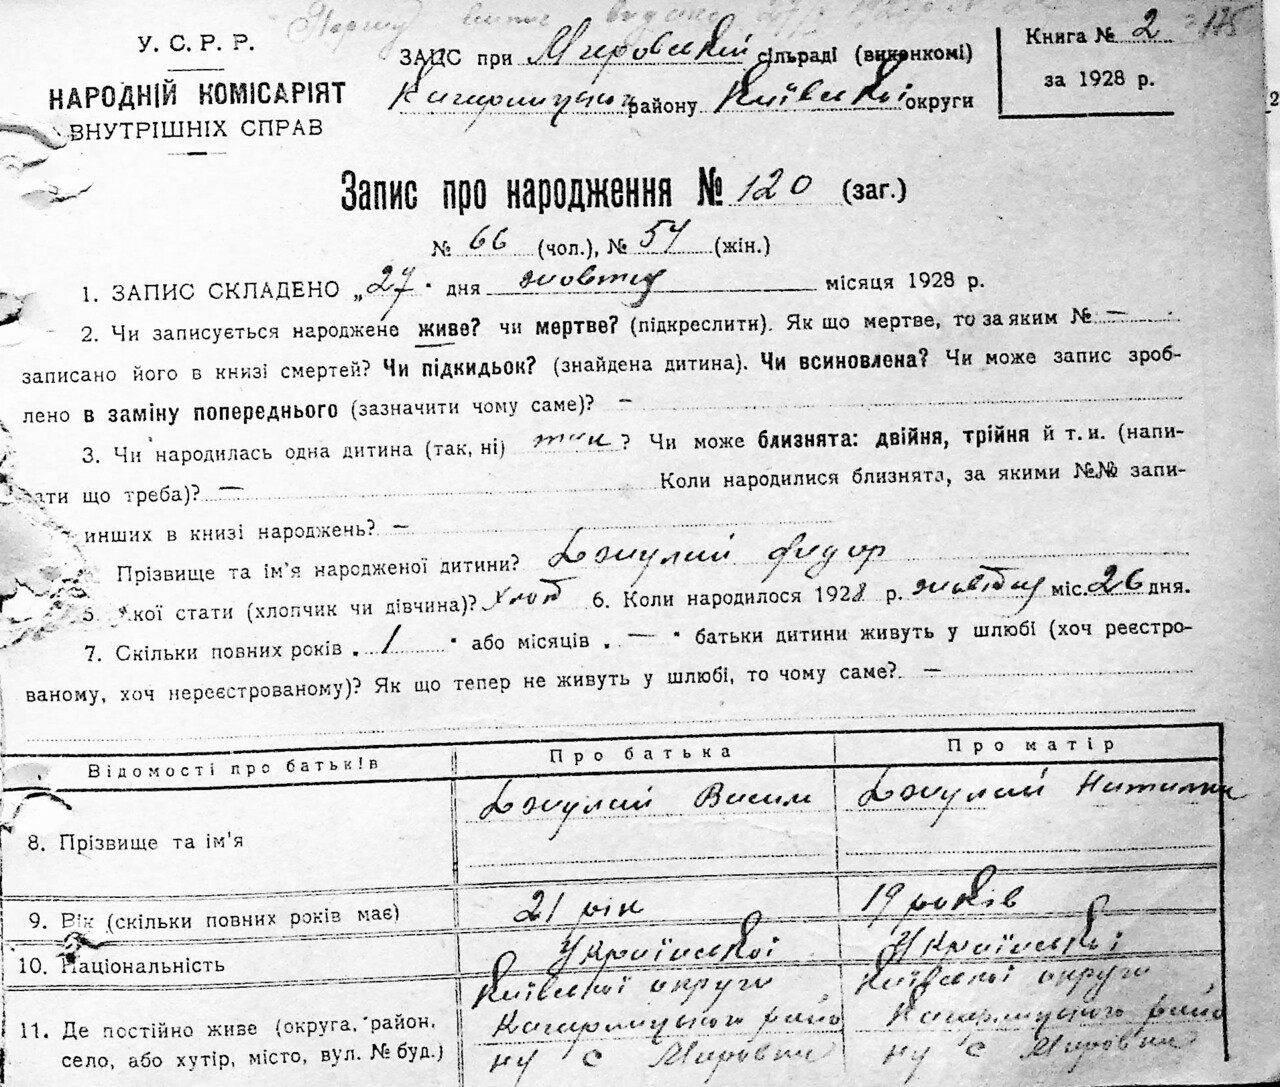 У. С. Р. Р.
НАРОДНІЙ КОМІСАРІЯТ
ВНУТРІШНІХ СПРАВ
ЗАПИС при Мировській сільраді (виконкомі)
Кагарлицького району Київської округи
Книга № 2
за 1928 р.
175
Запис про народження № 120 (заг.)
№ 66 (чол.), № 54 (жін.)
1. ЗАПИС СКЛАДЕНО „27" дня жовтня місяця 1928 р.
2. Чи записується народжене живе? чи мертве? (підкреслити). Як що мертве, то за яким № —
записано його в книзі смертей? Чи підкидьок? (знайдена дитина). Чи всиновлена? Чи може запис зроб-
лено в заміну попереднього (зазначити чому саме)? —
3. Чи народилась одна дитина (так, ні) так? Чи може близнята: двійня, трійня й т. и. (напи-
сати що треба)? — Коли народилися близнята, за якими №№ запи-
инших в книзі народжень? —
Прізвище та ім'я народженої дитини? Джулай Федор
5. Якої стати (хлопчик чи дівчина)? хлоп 6. Коли народилося 1928 р. жовтня міс. 26 дня.
7. Скільки повних років „ 1 " або місяців „ — " батьки дитини живуть у шлюбі (хоч реєстро-
ваному, хоч нереєстрованому)? Як що тепер не живуть у шлюбі, то чому саме? —
Відомості про батьків Про батька Про матір
8. Прізвище та ім'я Джулай Васил Джулай Наталка
9. Вік (скільки повних років має) 21 рік 19 років
10. Національність Української Української
11. Де постійно живе (округа, район,
село, або хутір, місто, вул. № буд.)
Київської округи
Кагарлицького райо
ну с Мировка
Київської округи
Кагарлицького райо
ну с Мировка